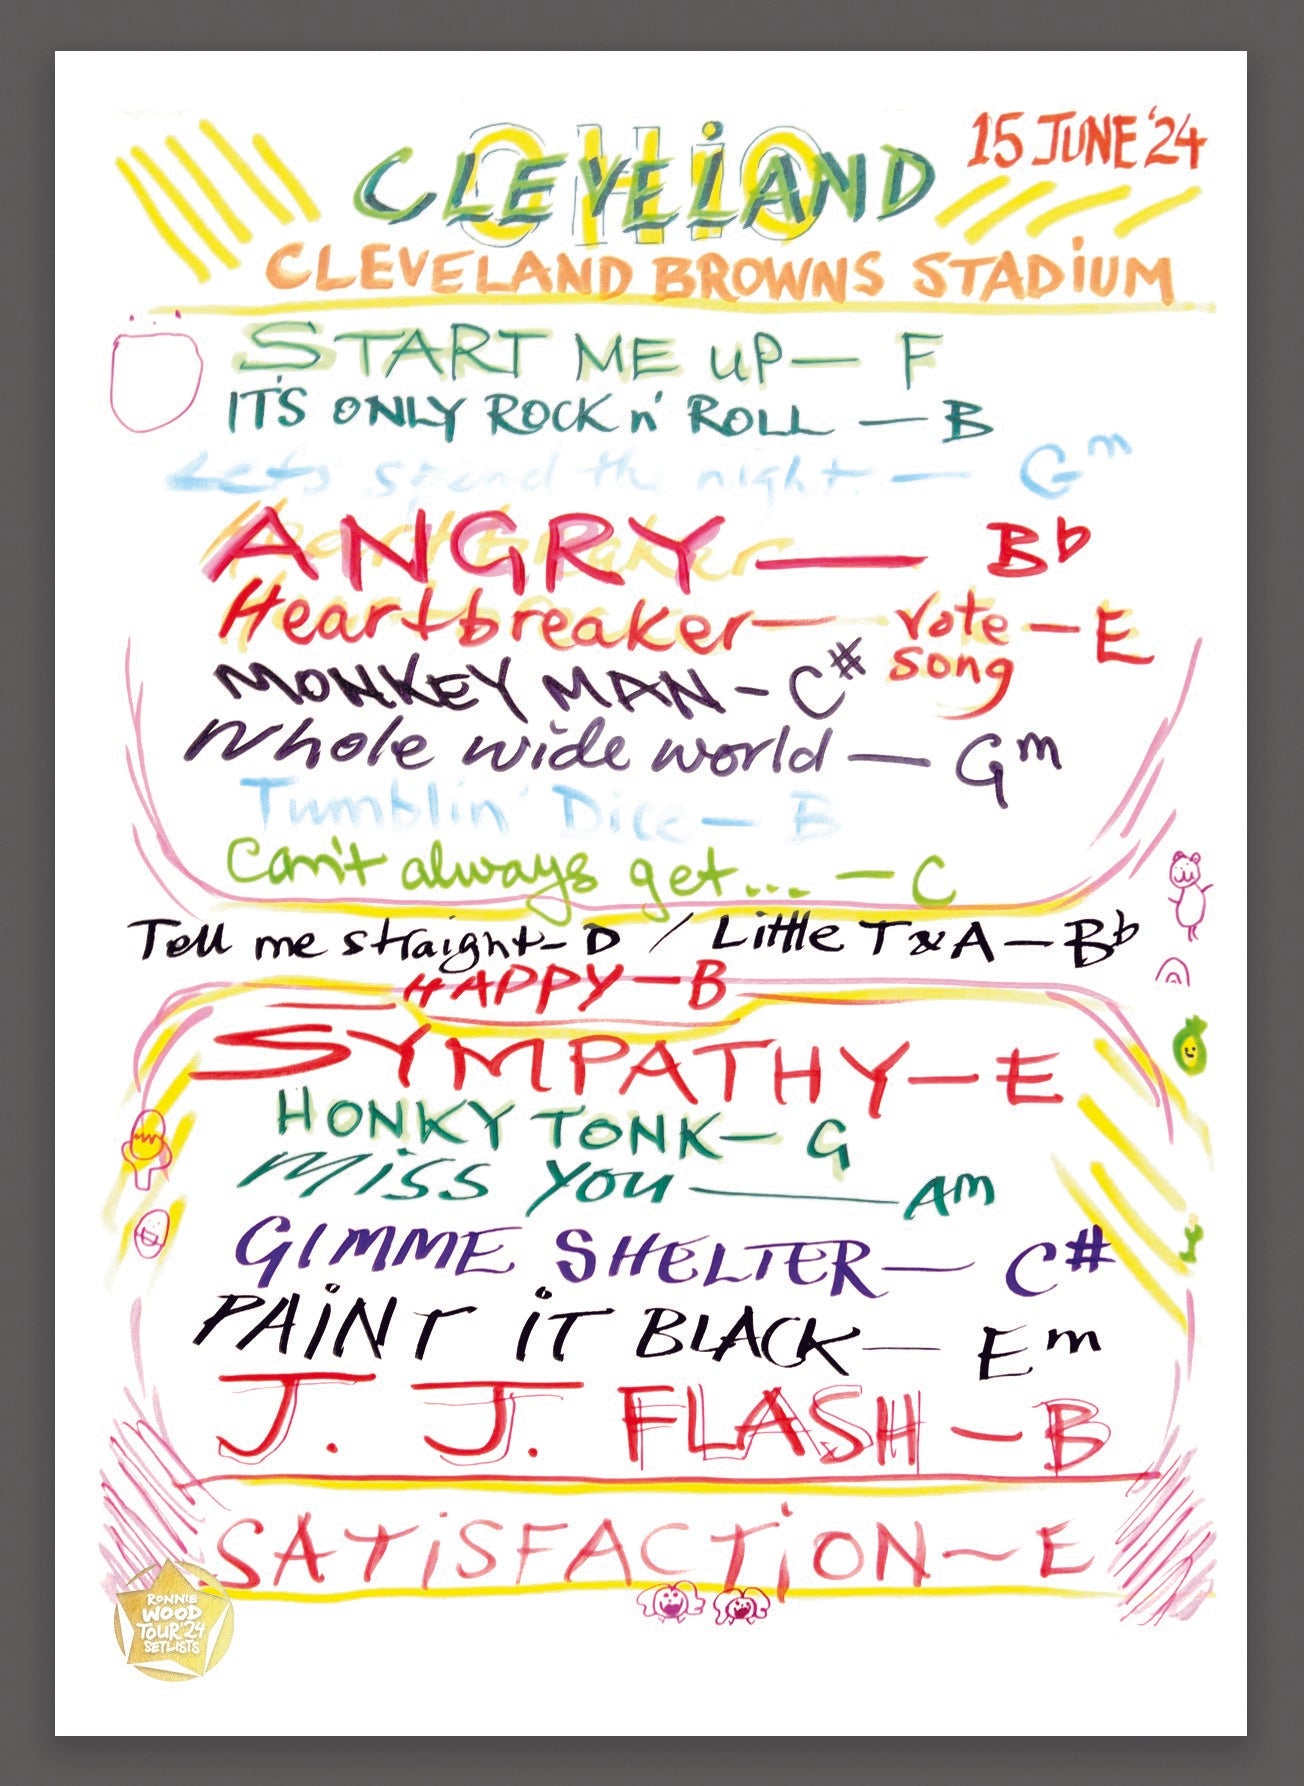 OHIO
CLEVELAND
15 JUNE '24
CLEVELAND BROWNS STADIUM
START ME UP — F
IT'S ONLY ROCK n' ROLL — B
Let's spend the night — Gm
Heartbreaker
ANGRY — Bb
Heartbreaker — vote song — E
MONKEY MAN - C#
Whole wide world — Gm
Tumblin' Dice — B
Can't always get... — C
Tell me straight - D / Little T & A — Bb
HAPPY — B
SYMPATHY — E
HONKY TONK — G
MISS YOU — Am
GIMME SHELTER — C#
PAINT IT BLACK — Em
J. J. FLASH — B
SATISFACTION — E
RONNIE
WOOD
TOUR '24
SETLISTS